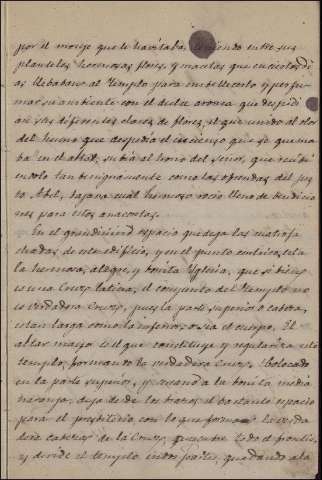 por el monge que lo havitaba, teniendo entre sus
planteles hermosas flores, y macetas que en ciertos di
as llebaban al Templo para embellecerlo y perfu
mar su ambiente con el dulce aroma que despedi
an las diferentes clases de flores, el que unido al olor
del humo que despedia el incienso que se quema
ba en el altar, subia al trono del Señor, que recibi
endolo tan benignamente como las ofrendas del jus
to Abel, bajara cual hermoso rocio lleno de bendicio
nes para estos anacoretas.
En el grandisimo espacio que deja las cuatro fa
chadas de este edificio, y en el punto centrico, esta
la hermosa, alegre, y bonita Yglesia, que si bien
es una Cruz latina, el conjunto del Templo no
es verdadera Cruz, pues la parte superior o cabeza,
es tan larga como la inferior, o sea el cuerpo. El
altar mayor es el que constituye y regulariza este
templo, formando la verdadera Cruz. Colocado
en la parte superior, y cercano a la bonita media
naranja, deja de de los brazos el bastante espacio
para el presbiterio, con lo que forma la verda
dera cabeza de la Cruz, que cubre todo el frontis,
y divide el templo en dos partes, quedando a la